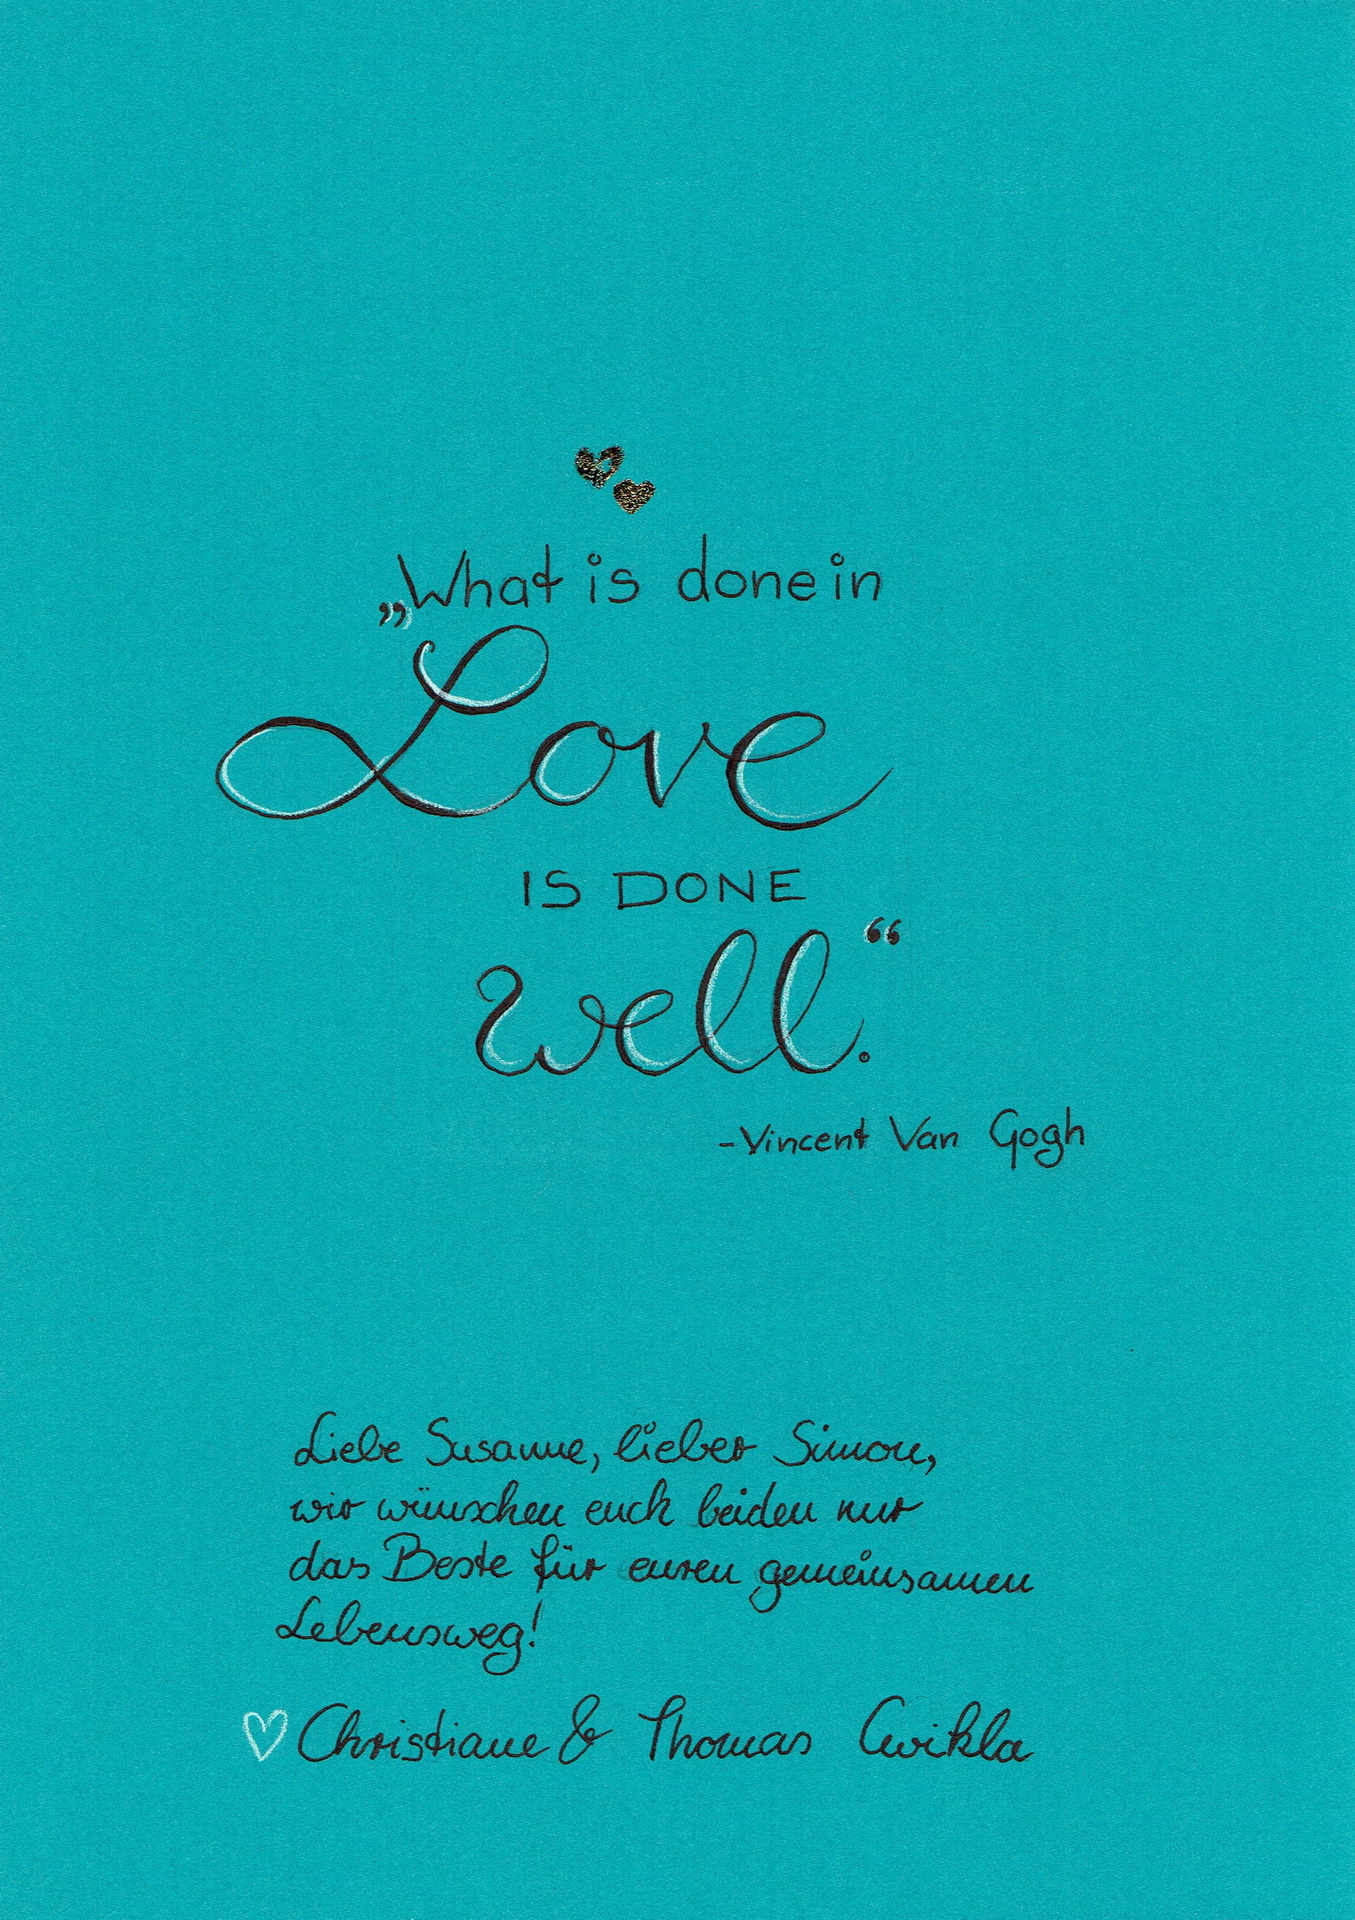 „What is done in
Love
IS DONE
well.“
-Vincent Van Gogh
Liebe Susanne, lieber Simon,
wir wünschen euch beiden nur
das Beste für euren gemeinsamen
Lebensweg!
Christiane & Thomas Cwikla